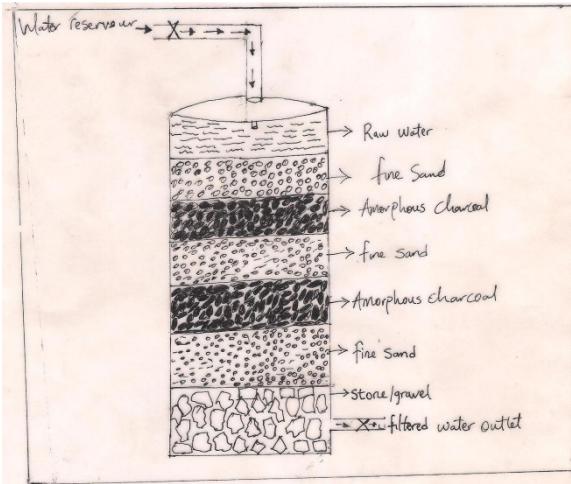 Water reservour
Raw water
fine Sand
Amorphous charcoal
fine sand
Amorphous charcoal
fine sand
stone/gravel
filtered water outlet